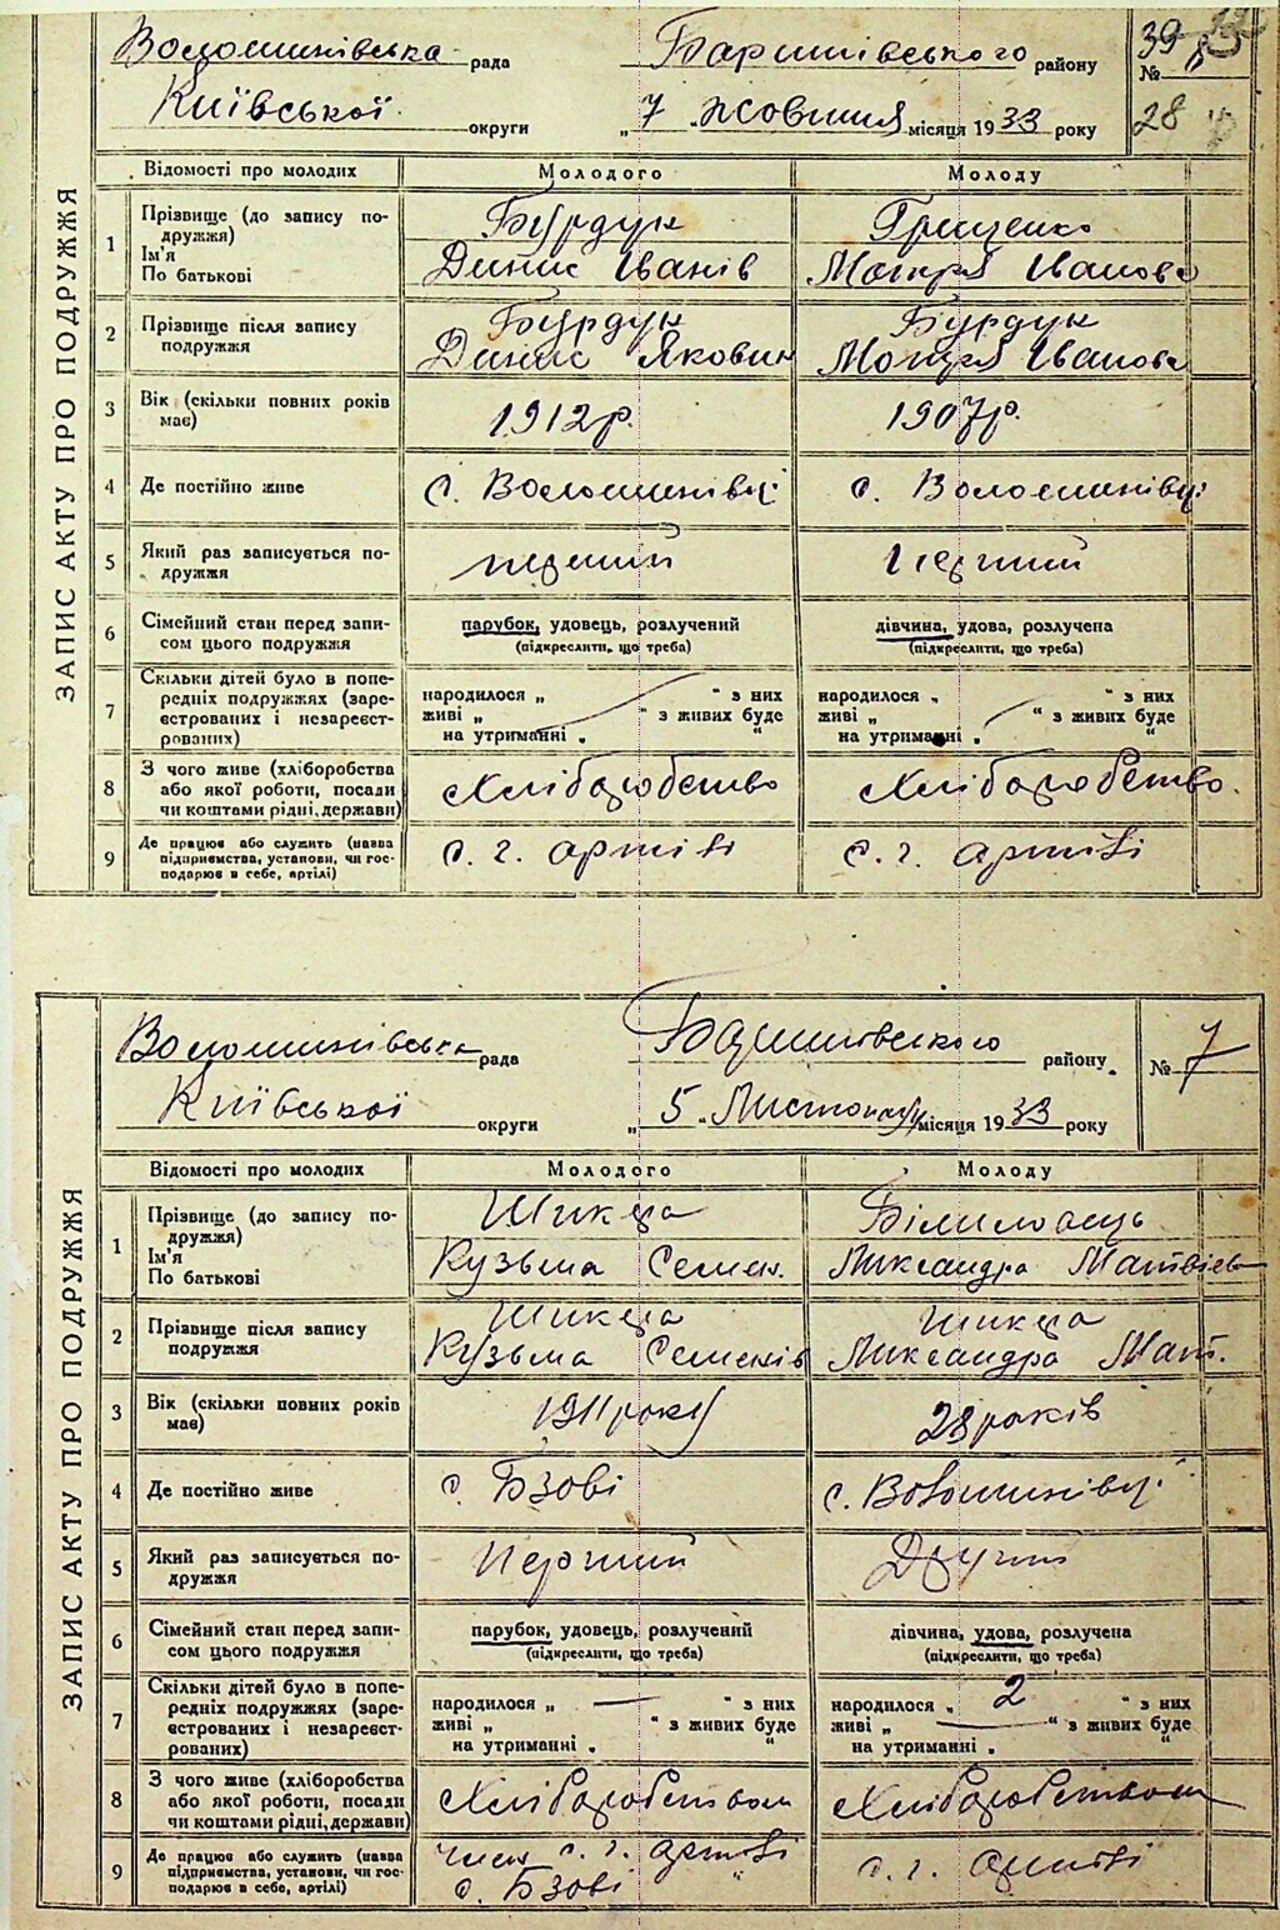 Волошинівська рада Баришівського району 39
№
Київської округи „7" жовтня місяця 1933 року 28
ЗАПИС АКТУ ПРО ПОДРУЖЖЯ
Відомості про молодих Молодого Молоду
1 Прізвище (до запису по- Бурдук Грищенко
дружжя)
Ім'я Динис Іванів Мотря Іванова
По батькові
2 Прізвище після запису Бурдук Бурдук
подружжя Динис Яковин Мотря Іванова
3 Вік (скільки повних років 1912 р. 1907 р.
має)
4 Де постійно живе с. Волошинівці с. Волошинівці
5 Який раз записується по- перший перший
дружжя
6 Сімейний стан перед запи- парубок, удовець, розлучений дівчина, удова, розлучена
сом цього подружжя (підкреслити, що треба) (підкреслити, що треба)
7 Скільки дітей було в попе-
редніх подружжях (заре- народилося „ " з них народилося „ " з них
єстрованих і незареєст- живі „ " з живих буде живі „ " з живих буде
рованих) на утриманні „ " на утриманні „ "
8 З чого живе (хліборобства Хліборобство Хліборобство.
або якої роботи, посади
чи коштами рідні, держави)
9 Де працює або служить (назва с. г. артілі с. г. артілі
підприємства, установи, чи гос-
подарює в себе, артілі)
Волошинівська рада Баришівського району № 7
Київської округи „5" Листопаду місяця 1933 року
ЗАПИС АКТУ ПРО ПОДРУЖЖЯ
Відомості про молодих Молодого Молоду
1 Прізвище (до запису по- Шикера
дружжя)
Ім'я Кузьма Семен. Ликсандра Матвієв
По батькові
2 Прізвище після запису Шикера Шикера
подружжя Кузьма Семенів Ликсандра Мат.
3 Вік (скільки повних років 1911 року 28 років
має)
4 Де постійно живе с. Бзові с. Волошинівці
5 Який раз записується по- Перший Другий
дружжя
6 Сімейний стан перед запи- парубок, удовець, розлучений дівчина, удова, розлучена
сом цього подружжя (підкреслити, що треба) (підкреслити, що треба)
7 Скільки дітей було в попе-
редніх подружжях (заре- народилося „ — " з них народилося „ 2 " з них
єстрованих і незареєст- живі „ " з живих буде живі „ — " з живих буде
рованих) на утриманні „ " на утриманні „ "
8 З чого живе (хліборобства Хліборобством Хліборобством
або якої роботи, посади
чи коштами рідні, держави)
9 Де працює або служить (назва член с. г. артілі с. г. артілі
підприємства, установи, чи гос- с. Бзові
подарює в себе, артілі)